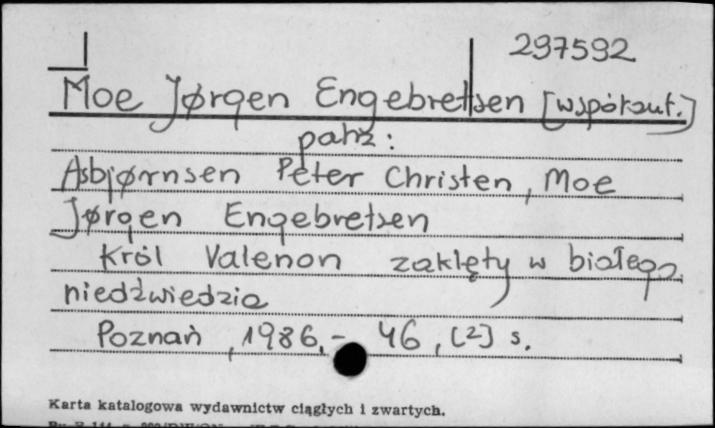 297592
Moe Jørgen Engebretsen [współaut.]
patrz:
Asbjørnsen Peter Christen, Moe
Jørgen Engebretsen
Król Valemon zaklęty w białego
niedźwiedzia
Poznań, 1986.- 46, [2] s.
Karta katalogowa wydawnictw ciągłych i zwartych.